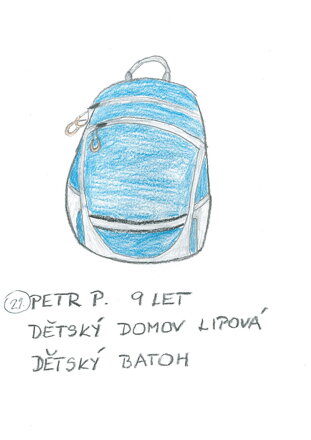 21. PETR P. 9 LET
DĚTSKÝ DOMOV LIPOVÁ
DĚTSKÝ BATOH